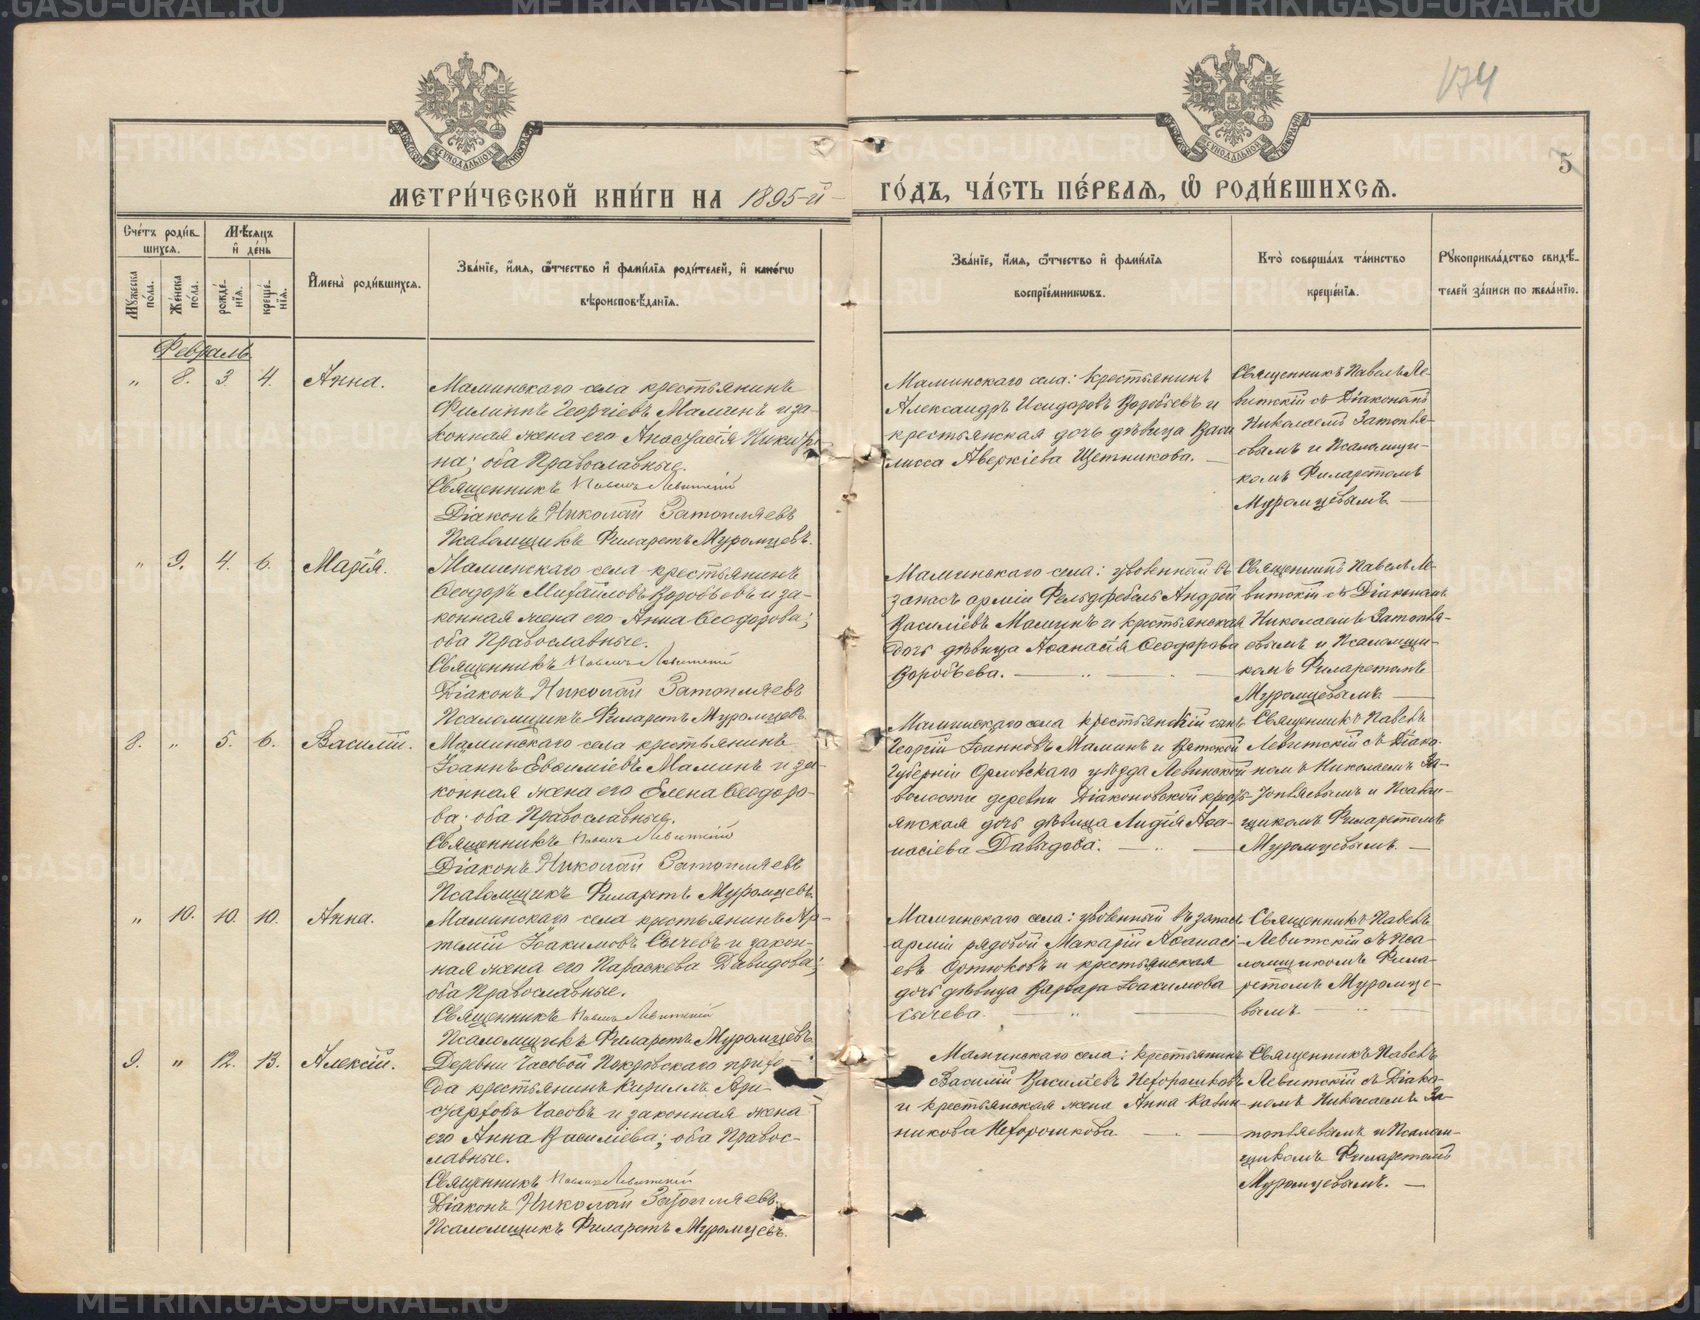 174
5
МЕТРИ́ЧЕСКОЙ КНИ́ГИ НА 1895-й
ГО́ДЪ, ЧА́СТЬ ПЕ́РВАЯ, Ѡ РОДИ́ВШИХСЯ.
Сче́тъ роди́в
шихся.
Мѣсяцъ
и́ де́нь
Му́жеска
по́ла.
Же́нска
по́ла.
рожде́
нїя.
креще́
нїя.
И҆мена̀ роди́вшихся.
Зва́нїе, и҆мя, ѻ҆тчество и҆ фами́лїя роди́телей, и҆ како́гѡ
вѣроисповѣ́данїя.
Зва́нїе, и҆мя, ѻ҆тчество и҆ фами́лїя
воспрїе́мникѡвъ.
Кто̀ соверша́лъ та́инство
креще́нїя.
Рꙋкоприкла́дство свидѣ́-
телей за́писи по жела́нїю.
Февраль
" 8. 3. 4. Анна.
Маминскаго села крестьянинъ
Филиппъ Георгіевъ Маминъ и за-
конная жена его Анастасія Никифори-
на; оба Православные.
Священникъ Павелъ Левитскій
Діаконъ Николай Затопляевъ
Псаломщикъ Филаретъ Муромцевъ.
Маминскаго села: крестьянинъ
Александръ Исидоровъ Воробьевъ и
крестьянская дочь дѣвица Васи
лисса Аверкіева Щетникова.
Священникъ Павелъ Ле
витскій съ Діакономъ
Николаемъ Затопля-
евымъ и Псаломщи-
комъ Филаретомъ
Муромцевымъ.
" 9. 4. 6. Марія.
Маминскаго села крестьянинъ
Ѳеодоръ Михайловъ Воробьевъ и за-
конная жена его Анна Ѳеодорова;
оба Православные.
Священникъ Павелъ Левитскій
Діаконъ Николай Затопляевъ
Псаломщикъ Филаретъ Муромцевъ.
Маминскаго села: уволенный въ
запасъ арміи Фельдфебель Андрей
Василіевъ Маминъ и крестьянская
дочь дѣвица Аѳанасія Ѳеодорова
Воробьева.
Священникъ Павелъ Ле-
витскій съ Діакономъ
Николаемъ Затопля-
евымъ и Псаломщи-
комъ Филаретомъ
Муромцевымъ.
8. " 5. 6. Василій.
Маминскаго села крестьянинъ
Іоаннъ Евѳиміевъ Маминъ и за-
конная жена его Елена Ѳеодоро-
ва: оба Православные.
Священникъ Павелъ Левитскій
Діаконъ Николай Затопляевъ
Псаломщикъ Филаретъ Муромцевъ.
Маминскаго села крестьянскій сынъ
Георгій Іоанновъ Маминъ и Вятской
Губерніи Орловскаго уѣзда Левинской
волости деревни Діаконовской кресть-
янская дочь дѣвица Лидія Аѳа-
насіева Давыдова.
Священникъ Павелъ
Левитскій съ Діако-
номъ Николаемъ За-
топляевымъ и Псалом-
щикомъ Филаретомъ
Муромцевымъ.
" 10. 10. 10. Анна.
Маминскаго села крестьянинъ Ар-
темій Іоакимовъ Сычевъ и закон-
ная жена его Параскева Давидова;
оба Православные.
Священникъ Павелъ Левитскій
Псаломщикъ Филаретъ Муромцевъ.
Маминскаго села: уволенный въ запасъ
арміи рядовой Макарій Аѳанасі-
евъ Ортюковъ и крестьянская
дочь дѣвица Варвара Іоакимова
Сычева.
Священникъ Павелъ
Левитскій съ Пса-
ломщикомъ Фила-
ретомъ Муромце-
вымъ.
9. " 12. 13. Алексій.
Деревни Часовой Покровскаго прихо-
да крестьянинъ Кириллъ Ари-
старховъ Часовъ и законная жена
его Анна Василіева; оба Правос-
лавные.
Священникъ Павелъ Левитскій
Діаконъ Николай Затопляевъ.
Псаломщикъ Филаретъ Муромцевъ.
Маминскаго села: крестьянинъ
Василій Василіевъ Нехорошковъ
и крестьянская жена Анна
никова Нехорошкова.
Священникъ Павелъ
Левитскій съ Діако-
номъ Николаемъ За-
топляевымъ и Псалом-
щикомъ Филаретомъ
Муромцевымъ.
METRIKI.GASU-URAL.RU